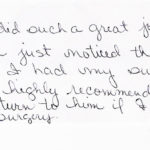 did such a great j
just noticed th
I had my su
highly recommend
turn to him if I
surgery.